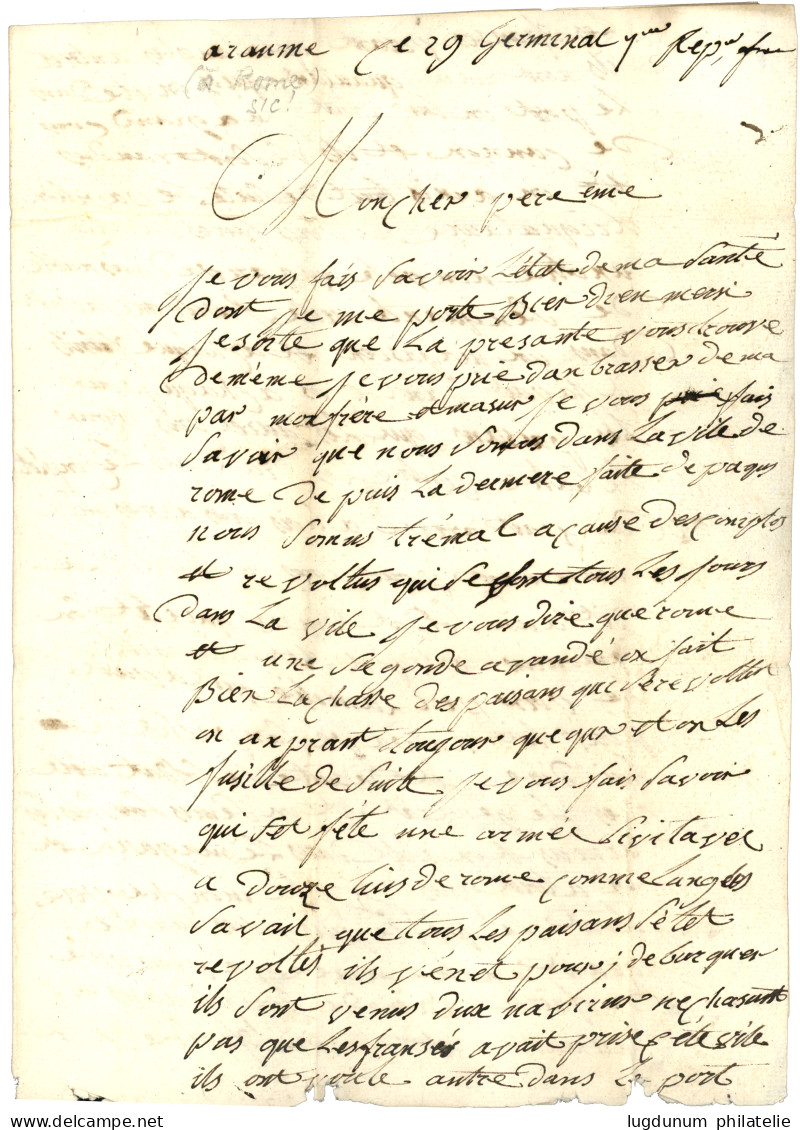 araume ce 29 Germinal 7me Repu fra
(à Rome)
sic!
Mon cher pere éme
je vous fais savoir l'état de ma santé
dont je me porte Bien dieu mersi
je soite que La presante vous trouve
de méme je vous prie danbrasser de ma
par mon frère et ma sur je vous prie fais
savoir que nous somus dans La vile de
rome de puis La derniere faite de paqus
nous somus trémal a cause des conplos
et revoltus qui se font tous Les jours
dans La vile je vous dire que rome
et une segonde avandé on fait
Bien La chasse des paisans qui se revoltet
on an prant toujour queque et on Les
fusille de suite je vous fais savoir
qui set fété une armée Sivitavec
a douze lius de rome comme Langles
savait que tous Les paisans s'étet
revoltés ils vénet pour j debarquer
ils sont venus dux navirus ne chasant
pas que Les fransés avait prise cété vile
ils ont voule antré dans Le port
lugdunum philatelie